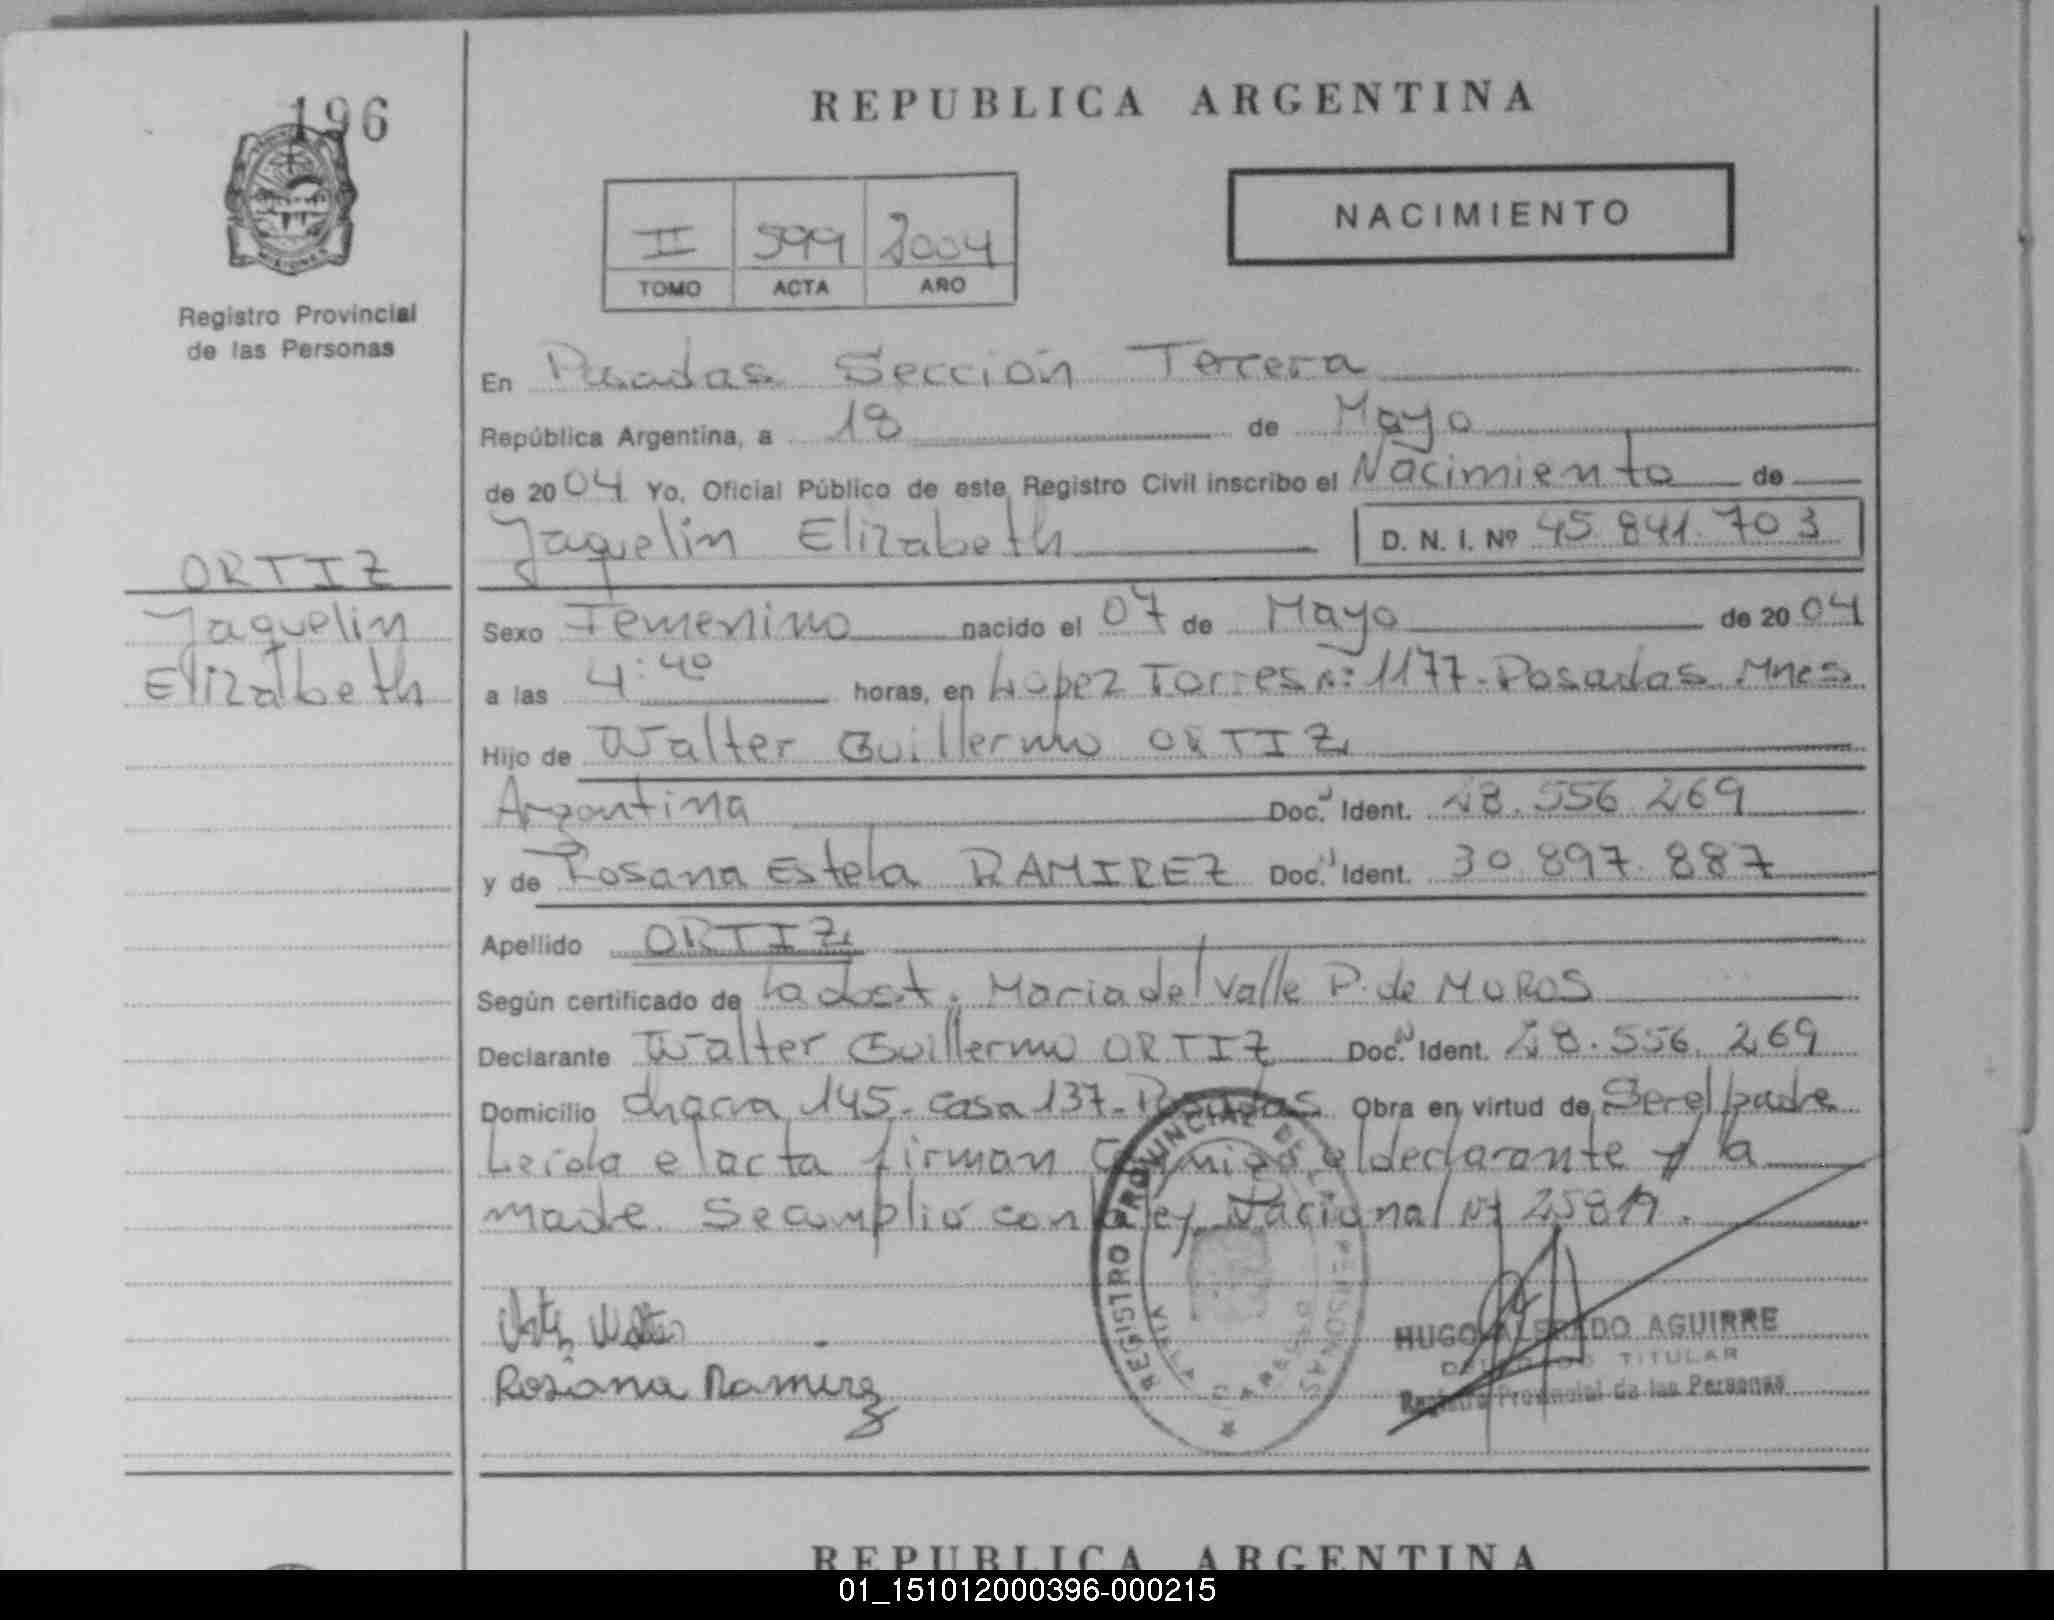 196
REPUBLICA ARGENTINA
NACIMIENTO
II 599 2004
TOMO ACTA AÑO
Registro Provincial
de las Personas
En Posadas Sección Tercera
República Argentina, a 18 de Mayo
de 2004 Yo, Oficial Público de este Registro Civil inscribo el Nacimiento de
Jaquelin Elizabeth D. N. I. Nº 45.841.703
ORTIZ
Jaquelin
Elizabeth
Sexo Femenino nacido el 07 de Mayo de 2004
a las 4:40 horas, en López Torres nº 1177. Posadas Mnes
Hijo de Walter Guillermo ORTIZ
Argentina Doc. Ident. 28.556.269
y de Rosana Estela RAMIREZ Doc. Ident. 30.897.887
Apellido ORTIZ
Según certificado de la obst. Maria del Valle P. de MUROS
Declarante Walter Guillermo ORTIZ Doc. Ident. 28.556.269
Domicilio chacra 145. casa 137. Posadas Obra en virtud de Ser el padre
Leída el acta firman conmigo el declarante y la
madre. Se cumplió con ley Nacional Nº
Rosana Ramirez
REGISTRO PROVINCIAL DE LAS PERSONAS
HUGO ALFREDO AGUIRRE
DELEGADO TITULAR
Registro Provincial de las Personas
REPUBLICA ARGENTINA
01_151012000396-000215